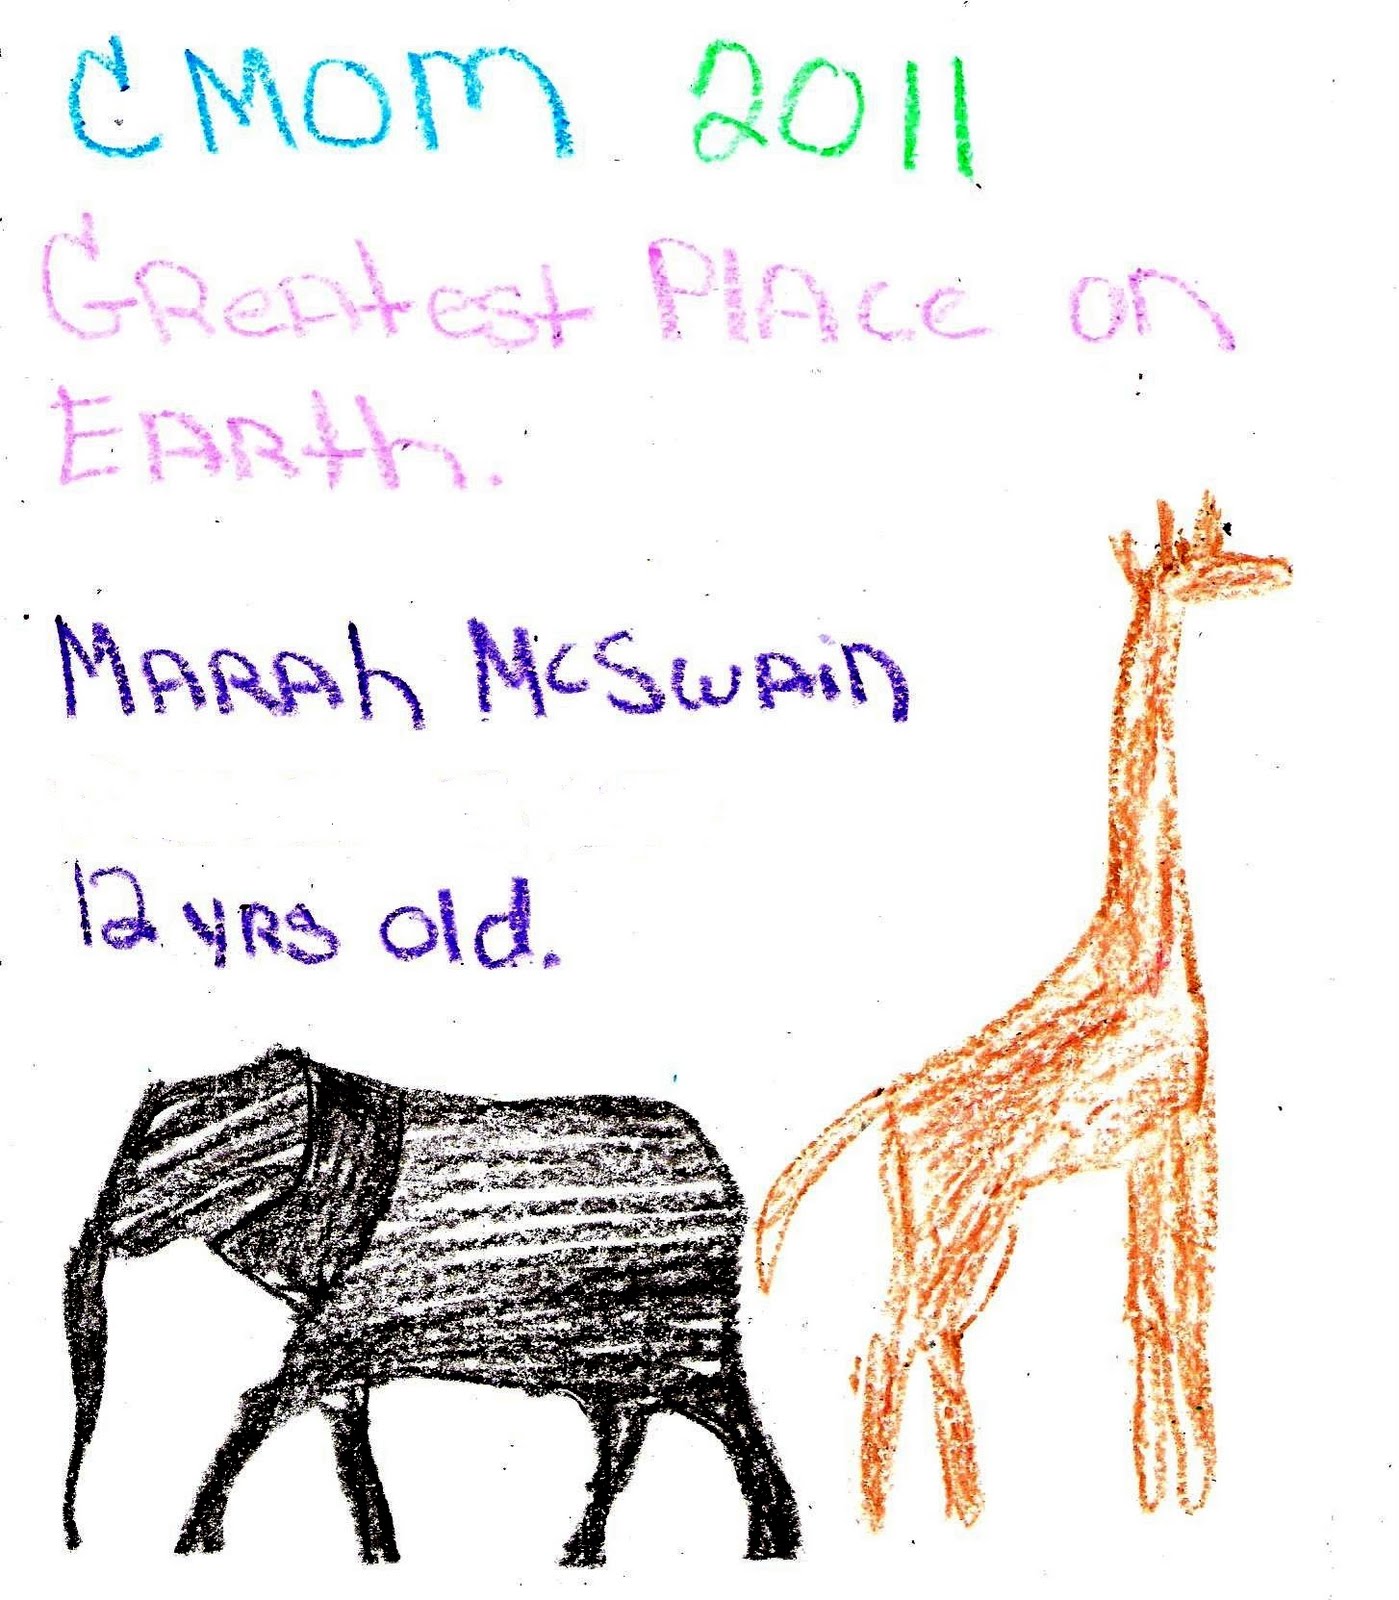 CMOM 2011
Greatest Place on
Earth.
Marah McSwain
12 yrs old.